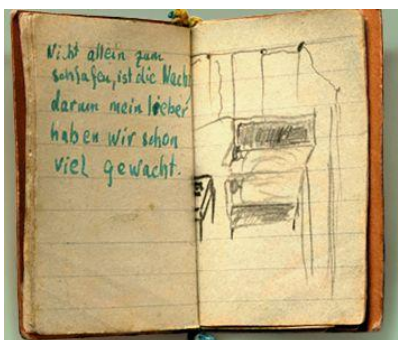 Nicht allein zum
schlafen, ist die Nacht
darum mein lieber
haben wir schon
viel gewacht.